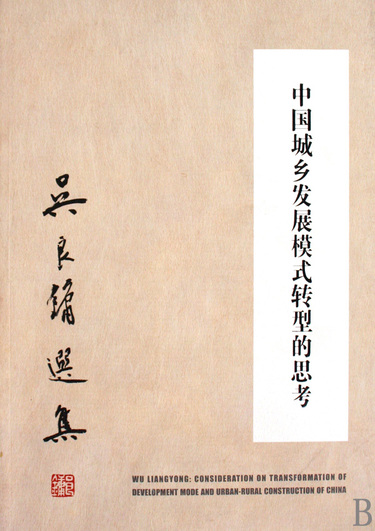 中国城乡发展模式转型的思考
吴良镛選集
WU LIANGYONG: CONSIDERATION ON TRANSFORMATION OF
DEVELOPMENT MODE AND URBAN-RURAL CONSTRUCTION OF CHINA
B